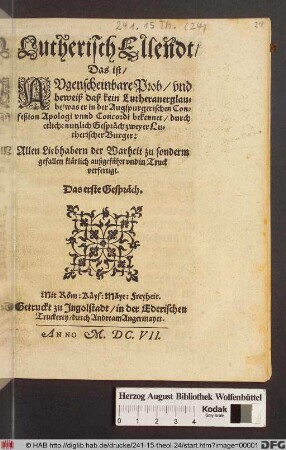 241. 15 Th. (24)
24
Lutherisch Ellendt/
Das ist/
AUgenscheinbare Prob/ vnd
beweiß daß kein Lutheraner glau-
be/ was er in der Augspurgerischen Con-
feßion Apologi vnnd Concordi bekennet/ durch
etlich: nutzlich Gespräch zweyer Lu-
therischer Burger:
Allen Liebhabern der Warheit zu sonderm
gefallen klärlich außgeführt vnd in Truck
verfertigt.
Das erste Gespräch.
Mit Röm: Käys: Mäye: Freyheit.
Getruckt zu Ingolstadt/ in der Ederischen
Truckerey/ durch Andream Angermayer.
ANNO M. DC. VII.
Herzog August Bibliothek Wolfenbüttel
Kodak
Gray scale
© HAB http://diglib.hab.de/drucke/241-15-theol-24/start.htm?image=00001
DFG